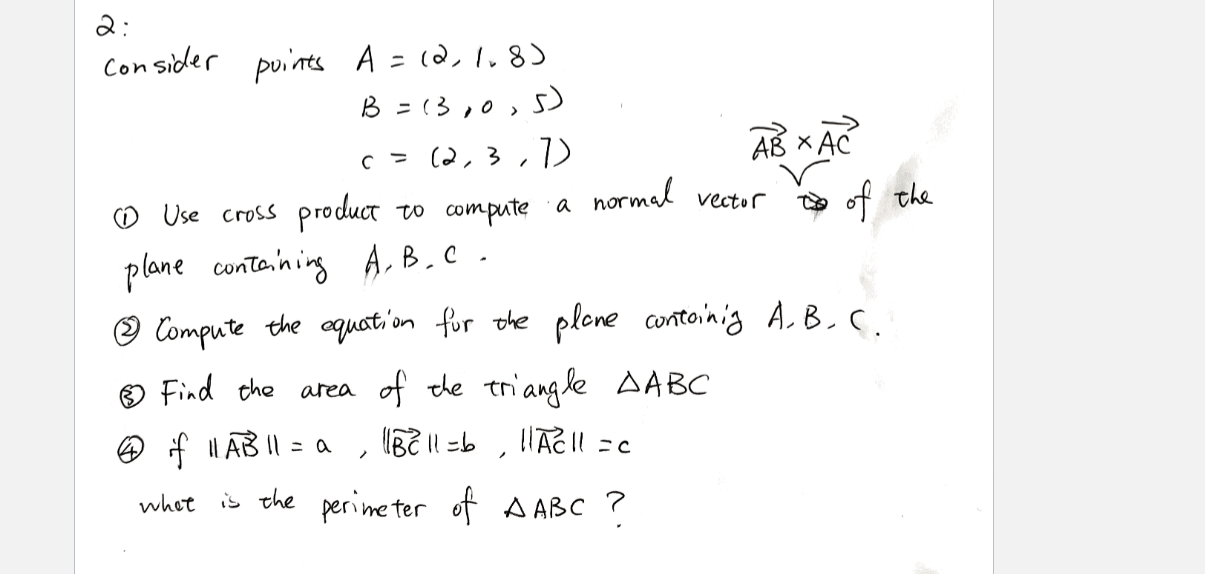 2:
Consider points A = (2, 1, 8)
B = (3, 0, 5)
C = (2, 3, 7)
AB × AC
① Use cross product to compute a normal vector of the
plane containing A, B, C.
② Compute the equation for the plane containig A, B, C.
③ Find the area of the triangle △ABC
④ if ||AB|| = a, ||BC|| = b, ||AC|| = c
what is the perimeter of △ABC ?